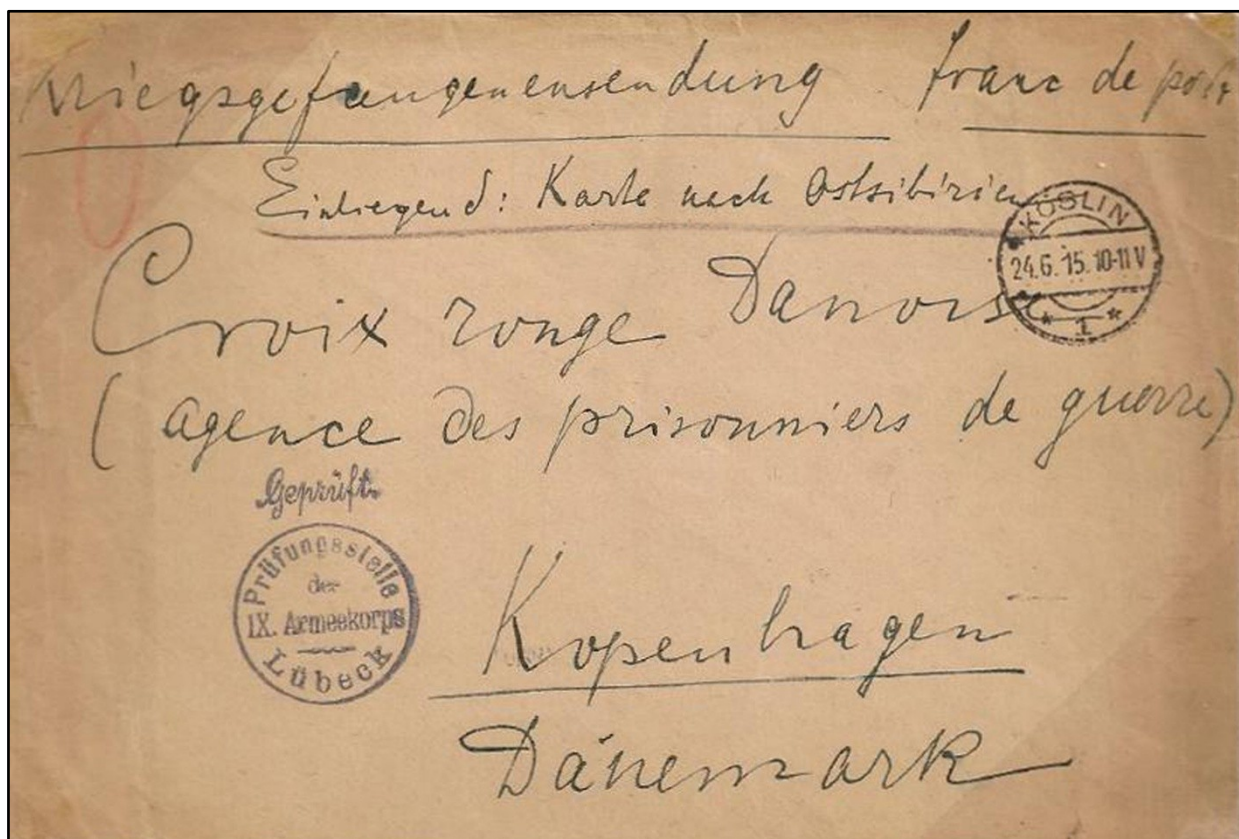 Kriegsgefangenensendung franc de port
Einliegend: Karte nach Ostsibirien
KÖSLIN
24.6.15.10-11V
* 1 *
Croix rouge Danoise
(agence des prisonniers de guerre)
Geprüft.
Prüfungsstelle
der
IX. Armeekorps
Lübeck
Kopenhagen
Dänemark